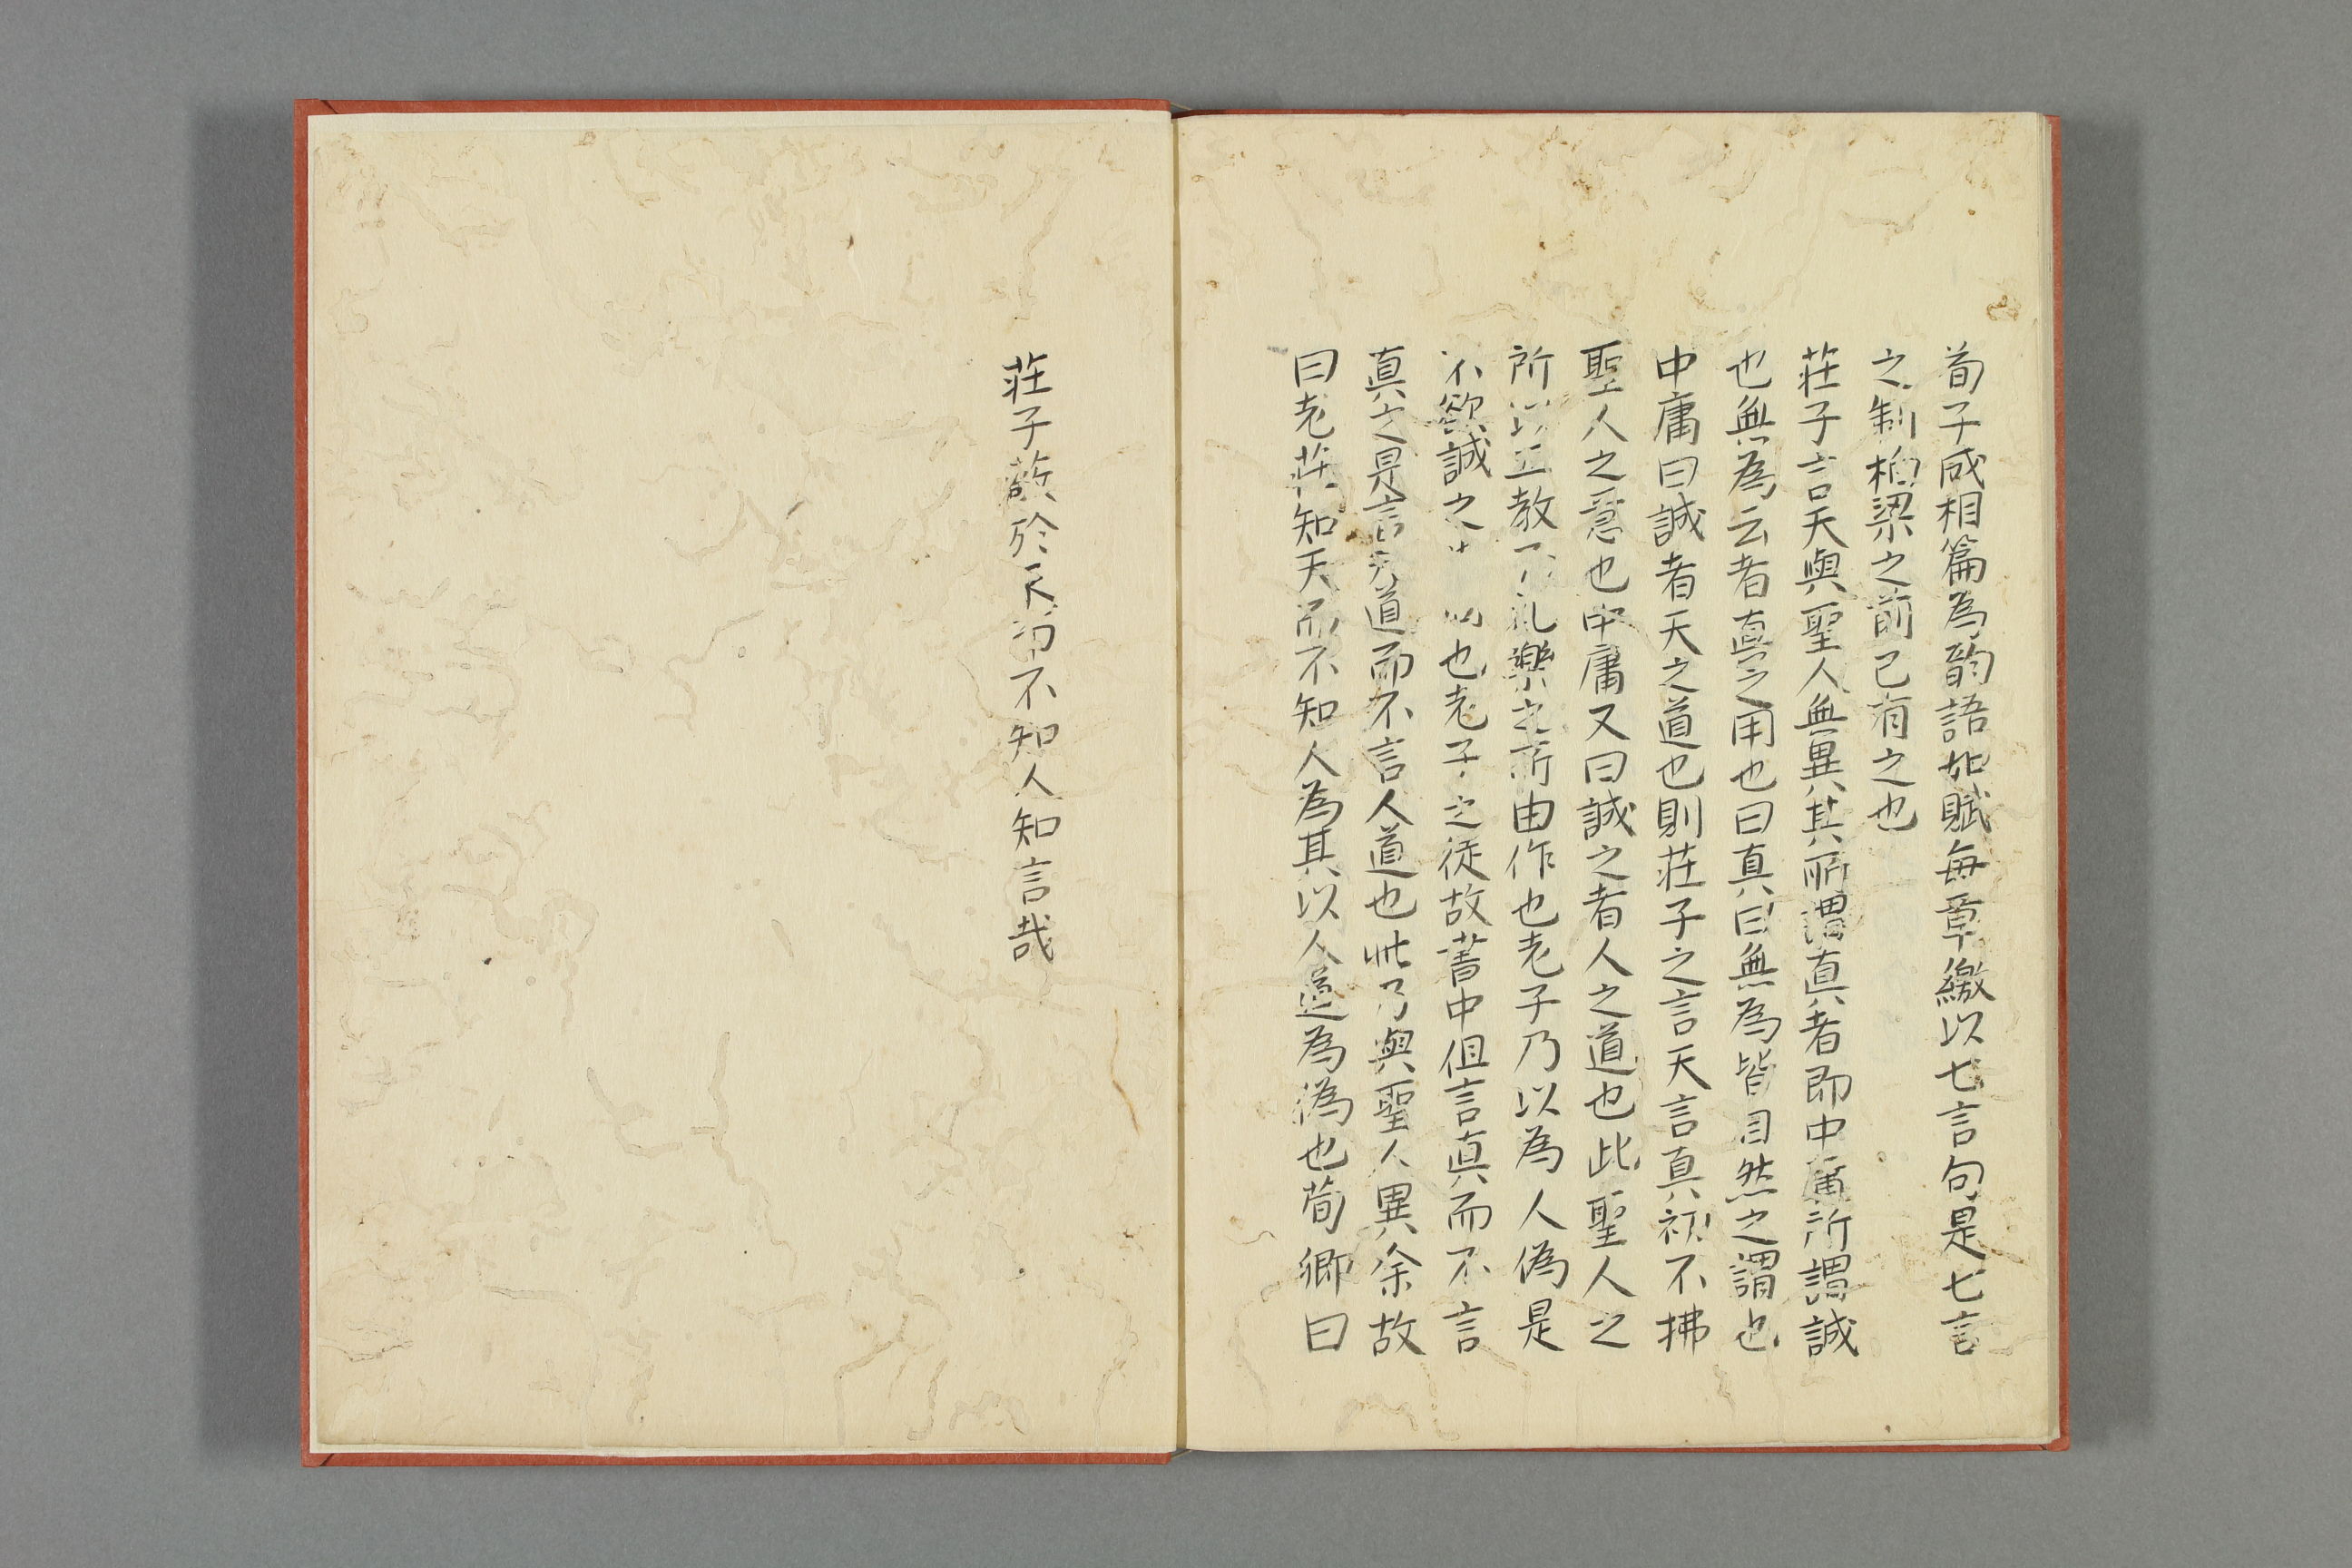 荀子成相篇為韵語如賦每章繳以七言句是七言
之制柏梁之前已有之也
莊子言天與聖人無異其所謂真者即中庸所謂誠
也無為云者真之用也曰真曰無為皆自然之謂也
中庸曰誠者天之道也則莊子之言天言真初不拂
聖人之意也中庸又曰誠之者人之道也此聖人之
所以立教 礼樂之所由作也老子乃以為人偽是
不欲誠之 以也老子之徒故書中但言真而不言
真之是言天道而不言人道也此乃與聖人異余故
曰老莊知天而不知人為其以人道為偽也荀卿曰
莊子蔽於天而不知人知言哉